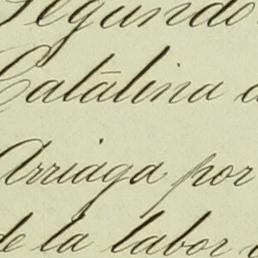 Segundo
Catalina
Arriaga por
de la labor